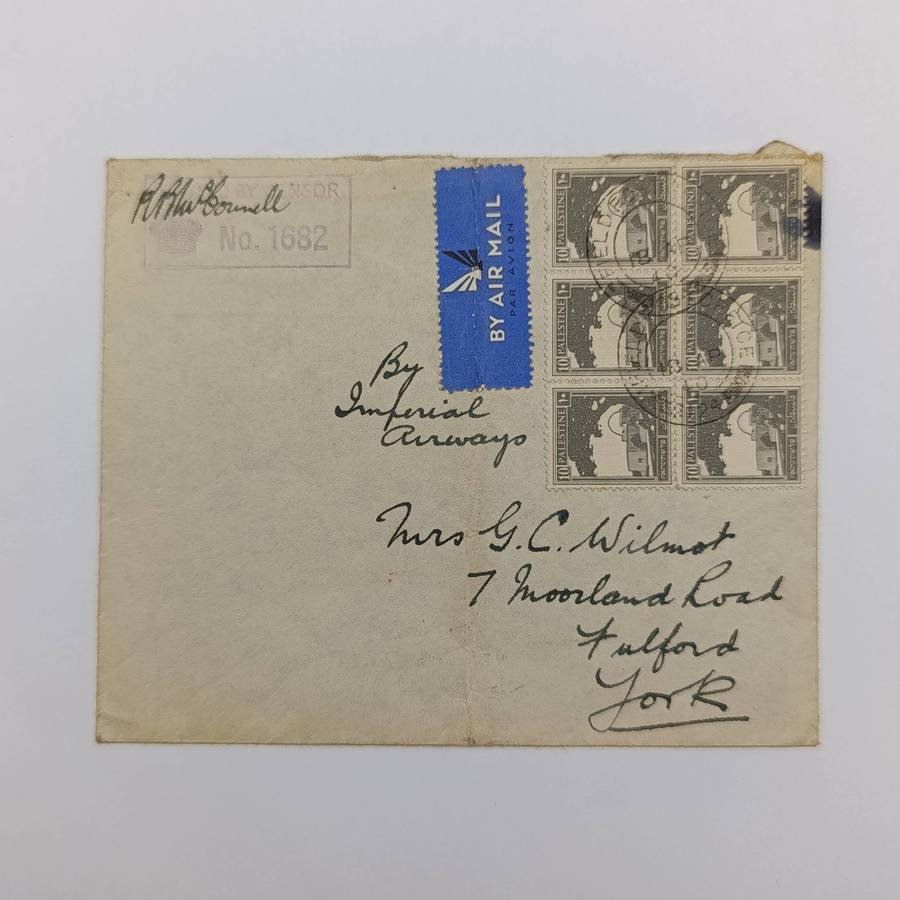 R B McConnell
BY CENSOR
No. 1682
BY AIR MAIL
PAR AVION
10 PALESTINE
10 PALESTINE
10 PALESTINE
10 PALESTINE
10 PALESTINE
10 PALESTINE
FIELD
13 AP
By
Imperial
Airways
Mrs G. C. Wilmot
7 Moorland Road
Fulford
York